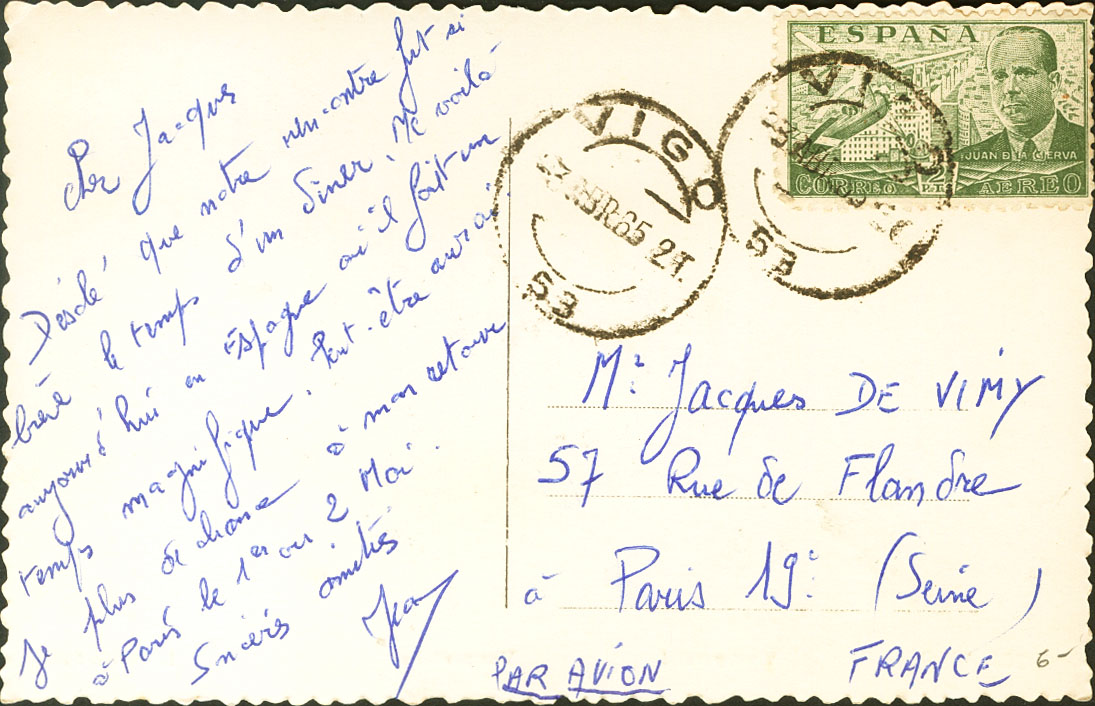 Cher Jacques
Désolé que notre rencontre fut si
brève le temps d'un dîner. Me voilà
aujourd'hui en Espagne où il fait un
temps magnifique. Peut-être aurai
Je plus de chance à mon retour
à Paris le 1er ou 2 Mai.
Sincères amitiés
Jean
ESPAÑA
JUAN DE LA CIERVA
CORREO 2 PT AEREO
VIGO
ABR 65 2T
53
VIGO
53
Mr. Jacques DE VIMY
57 Rue de Flandre
à Paris 19e (Seine)
PAR AVION FRANCE
6-